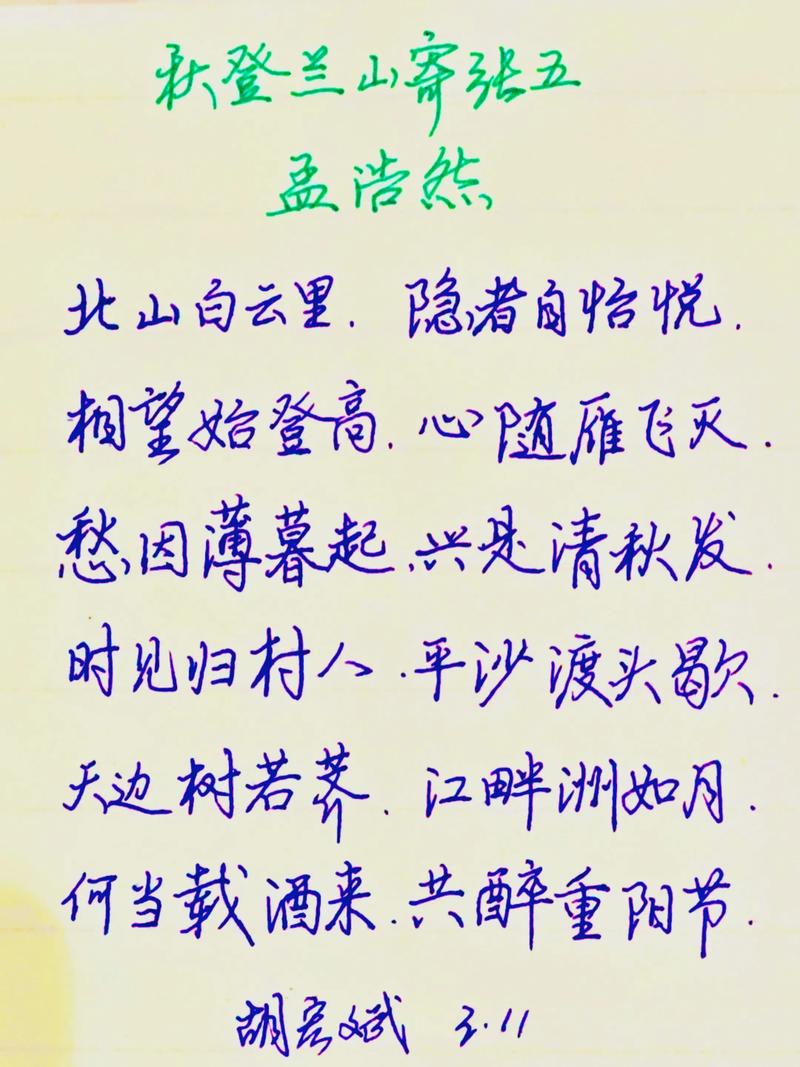 秋登兰山寄张五
孟浩然
北山白云里. 隐者自怡悦.
相望始登高. 心随雁飞灭.
愁因薄暮起. 兴是清秋发.
时见归村人. 平沙渡头歇.
天边树若荠. 江畔洲如月.
何当载酒来. 共醉重阳节.
胡宏斌 3.11